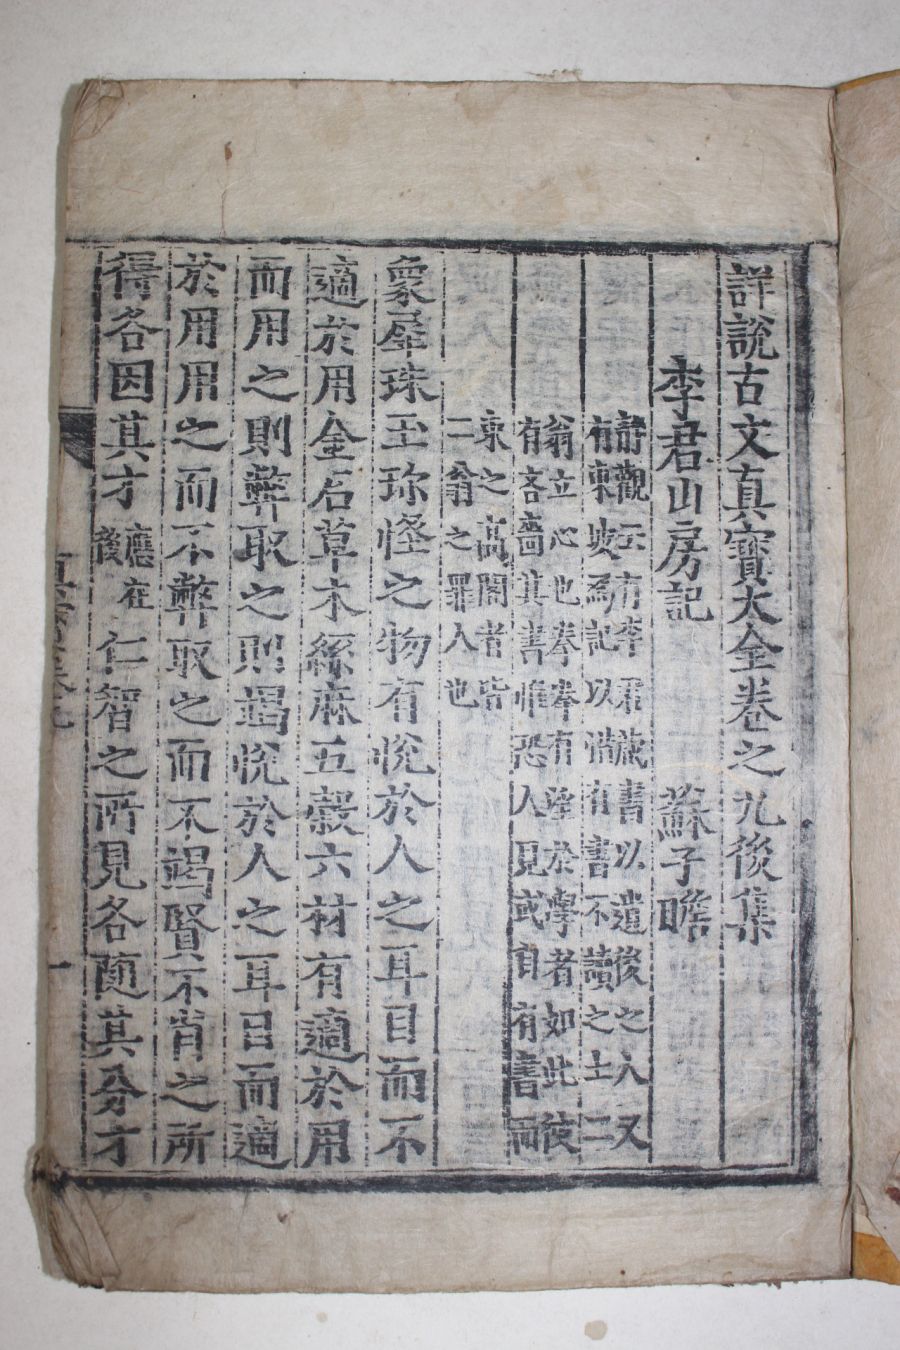 詳說古文眞寶大全卷之九後集
李君山房記　蘇子瞻
靜觀云有李君藏書以遺後之人又
有東坡爲記以惜有書不讀之士二
翁立心也拳拳有望於學者如此彼
有吝嗇其書惟恐人見或自有書而
束之高閣者皆
二翁之罪人也
象犀珠玉珍怪之物有悅於人之耳目而不
適於用金石草木絲麻五穀六材有適於用
而用之則弊取之則竭悅於人之耳目而適
於用用之而不弊取之而不竭賢不肖之所
得各因其才應在後仁智之所見各隨其分才
一